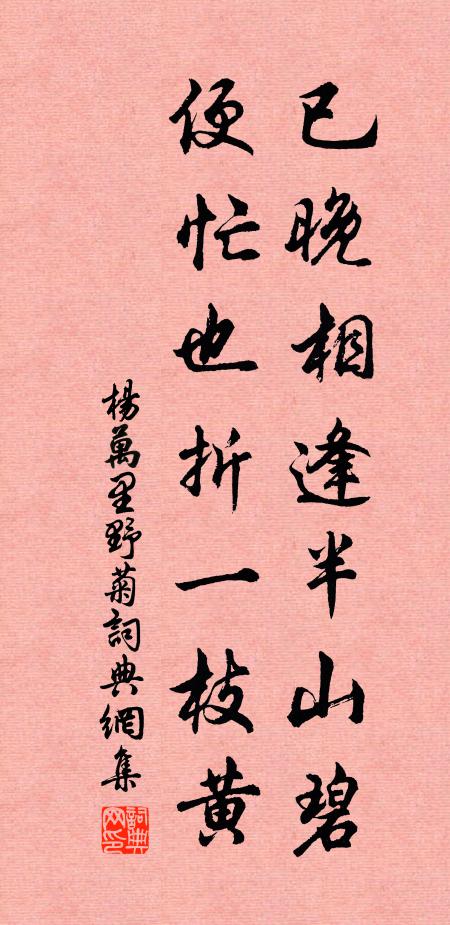 已晚相逢半山碧
便忙也折一枝黄
楊萬里野菊詞典網集
詞典网印